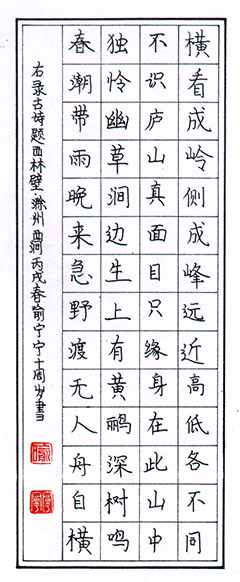 横看成岭侧成峰远近高低各不同
不识庐山真面目只缘身在此山中
独怜幽草涧边生上有黄鹂深树鸣
春潮带雨晚来急野渡无人舟自横
右录古诗题西林壁·滁州西涧丙戌春俞宁宁十周岁書